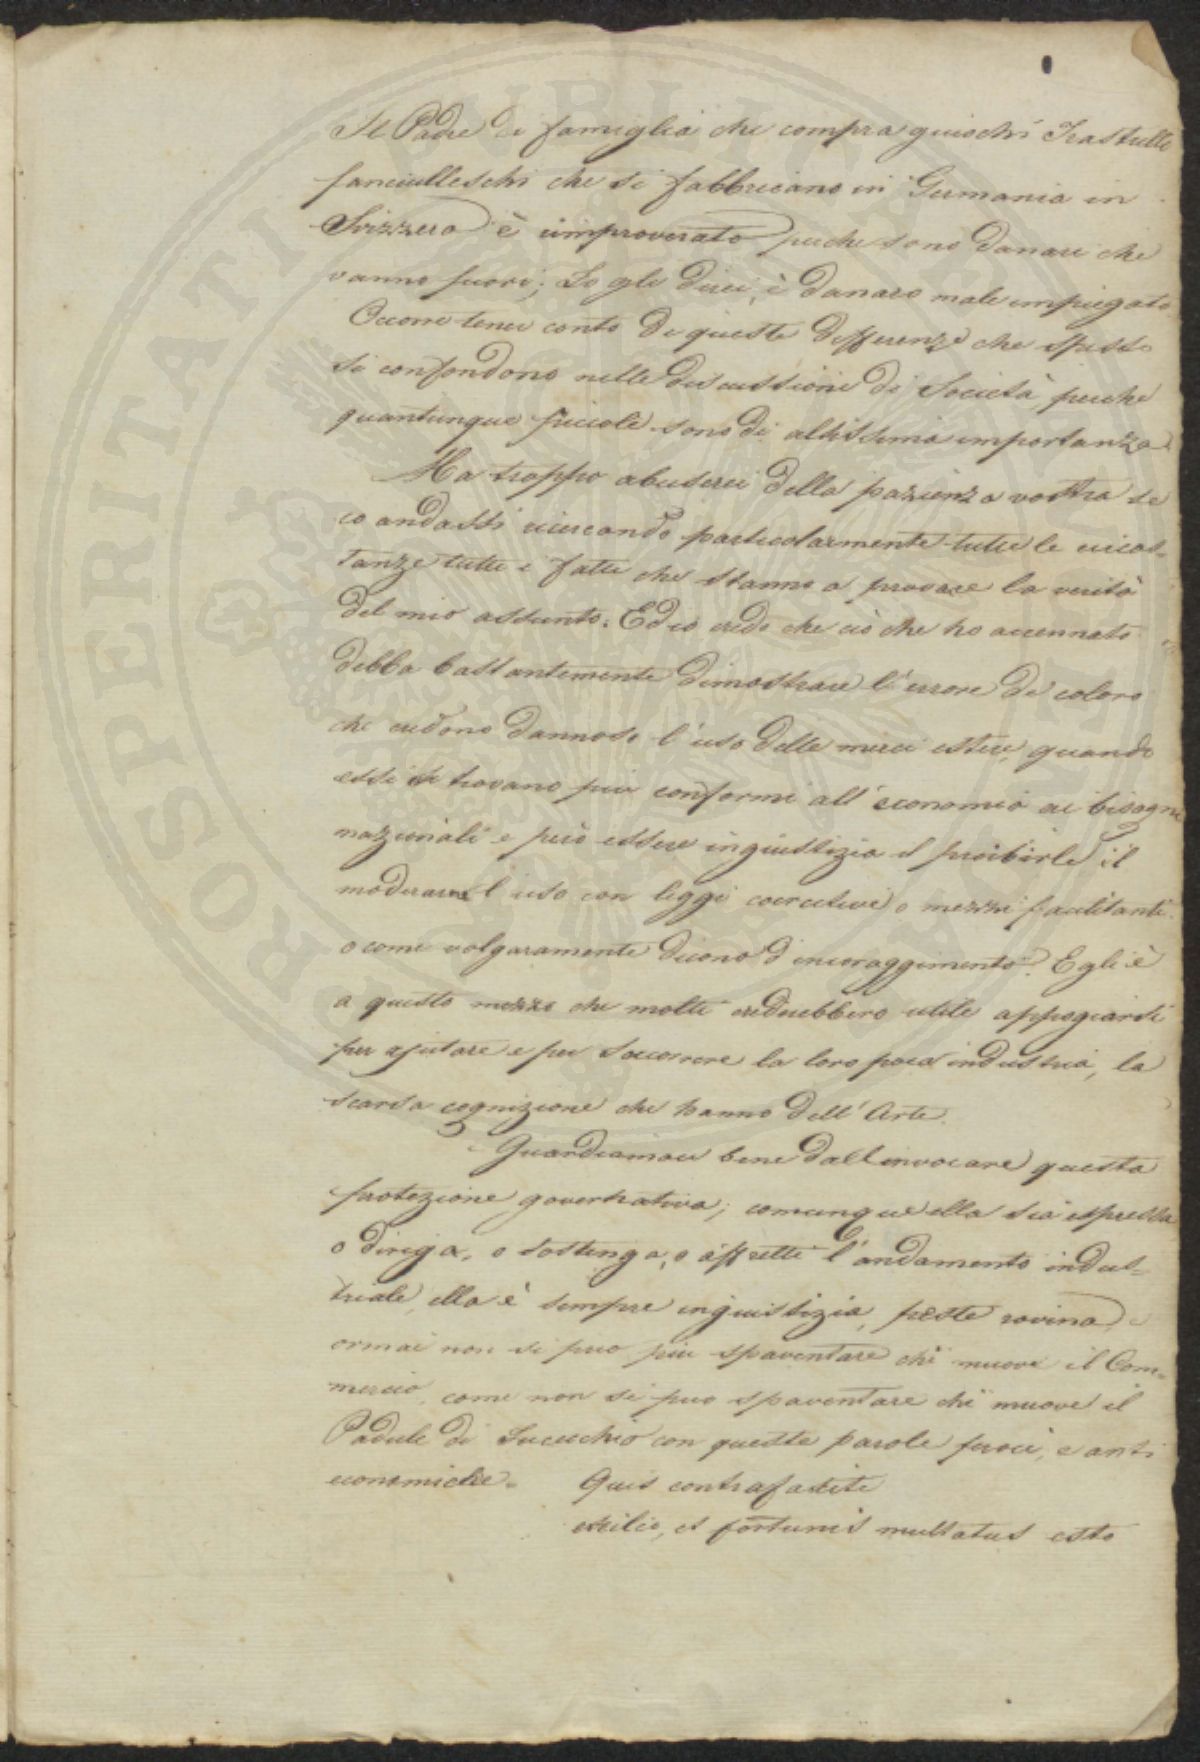 Il Padre di famiglia che compra giuochi Trastulli
fanciulleschi che si fabbricano in Germania in
Svizzera è rimproverato perche sono danari che
vanno fuori; Io gli direi, è danaro male impiegato
Occorre tener conto di queste differenze che spesso
si confondono nelle discussioni di Società, perche
quantunque piccole sono di altissima importanza
Ma troppo abuserei della pazienza vostra se
io andassi ricercando particolarmente tutte le circos-
tanze tutti i fatti che stanno a provare la verità
del mio assunto. Ed io credo che ciò che ho accennato
debba bastantemente dimostrare l'errore di coloro
che credono dannoso l'uso delle merci estere, quando
essi si trovano più conformi all'economia ai bisogni
nazionali e però essere ingiustizia il proibirle il
moderarne l'uso con leggi coercitive o mezzi facilitanti
o come volgaramente dicono d'incoraggimento. Egli è
a questo mezzo che molti crederebbero utile appogiarsi
per ajutare e per soccorrere la loro poca industria, la
scarsa cognizione che hanno dell'Arte.
Guardiamoci bene dall'invocare questa
protezione governativa; comunque ella sia espressa
o diriga, o sostenga, o affretti l'andamento indus-
triale, ella è sempre ingiustizia, peste rovina, e
ormai non si puo piu spaventare chi muove il Com-
mercio, come non si puo spaventare chi muove il
Padule di Fucecchio con queste parole feroci, e anti
economiche.   Quis contrafaxite
exilio, et fortunis multatus esto
PROSPERITATI PUBLICAE